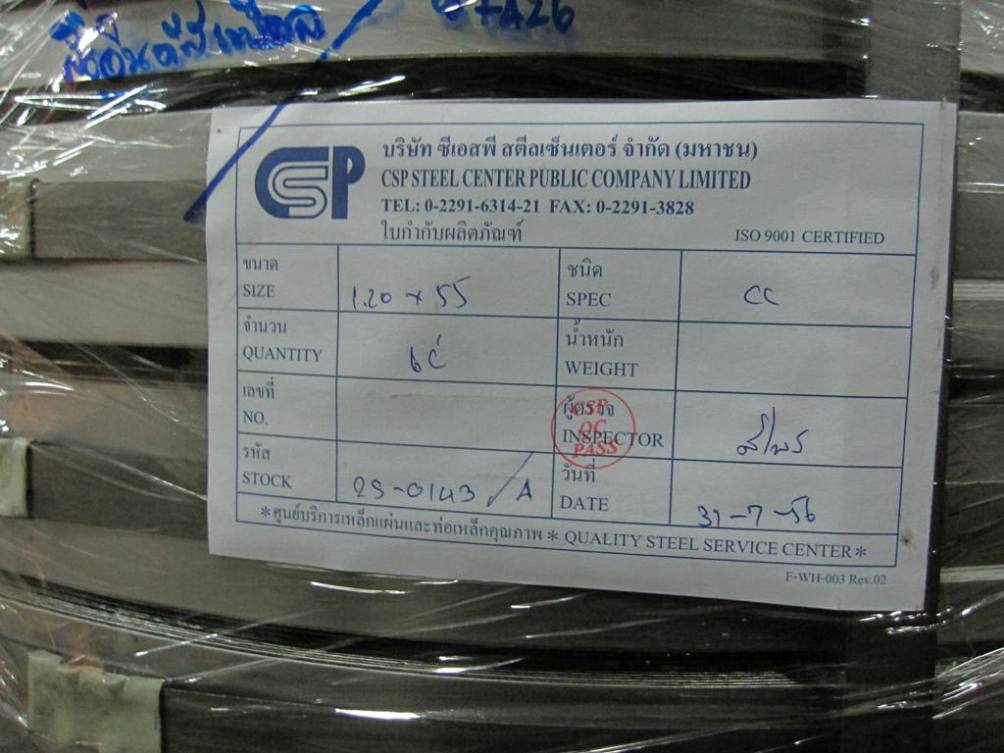 CSP
บริษัท ซีเอสพี สตีลเซ็นเตอร์ จำกัด (มหาชน)
CSP STEEL CENTER PUBLIC COMPANY LIMITED
TEL: 0-2291-6314-21 FAX: 0-2291-3828
ใบกำกับผลิตภัณฑ์
ISO 9001 CERTIFIED
ขนาด
SIZE
1.20 x 55
ชนิด
SPEC
CC
จำนวน
QUANTITY
น้ำหนัก
WEIGHT
เลขที่
NO.
ผู้ตรวจ
INSPECTOR
CSP
QC
PASS
รหัส
STOCK
2S-0143/A
วันที่
DATE
31-7-56
*ศูนย์บริการเหล็กแผ่นและท่อเหล็กคุณภาพ * QUALITY STEEL SERVICE CENTER*
F-WH-003 Rev.02